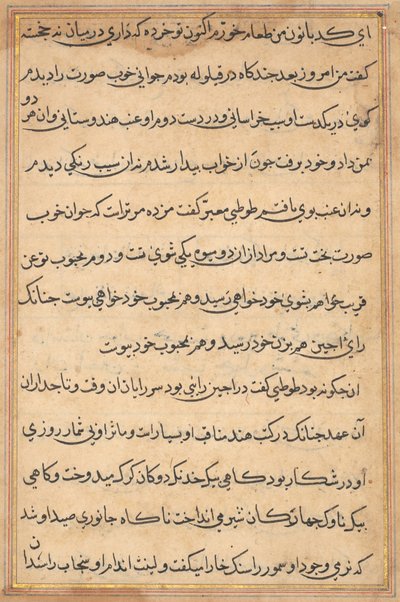 ای کدبانو من طعام خوردم اکنون تو خورده که داری در میان نه خجسته
کفت من امروز بعد چندکاه در قیلوله بودم جوانی خوب صورت را دیدم
کوی در یکدست او سیب خراسانی و در دست دوم او عنب هندوستانی و ان هر دو
بمن داد و خود برفت چون از خواب بیدار شدم نه ان سیب رنکی دیدم
و نه ان عنب بوی یافتم طوطی معبر کفت مژده مر تراست که جوان خوب
صورت بخت تست و مراد از ان دو میوه یکی شوی تست و دوم محبوب تو عن
قریب تو هم بشوی خود خواهی رسید و هم بمحبوب خود خواهی پیوست چنانک
رای اجین هم بزن خود رسید و هم بمحبوب خود پیوست
ان چکونه بود طوطی کفت در اجین رایی بود سر رایان ان وقت و تاجداران
آن عهد چنانک در کتب هند مناقب او بسیار است و ماثر او بی شمار روزی
او در شکار بود کاهی بیک خدنک دو کان کرک میدوخت و کاهی
بیک ناوک چهار کان شیر می انداخت ناکاه جانوری صید او شد
که نرمی وجود او سمور را سنک خارا میکفت و لینت اندام او سنجاب را سندان